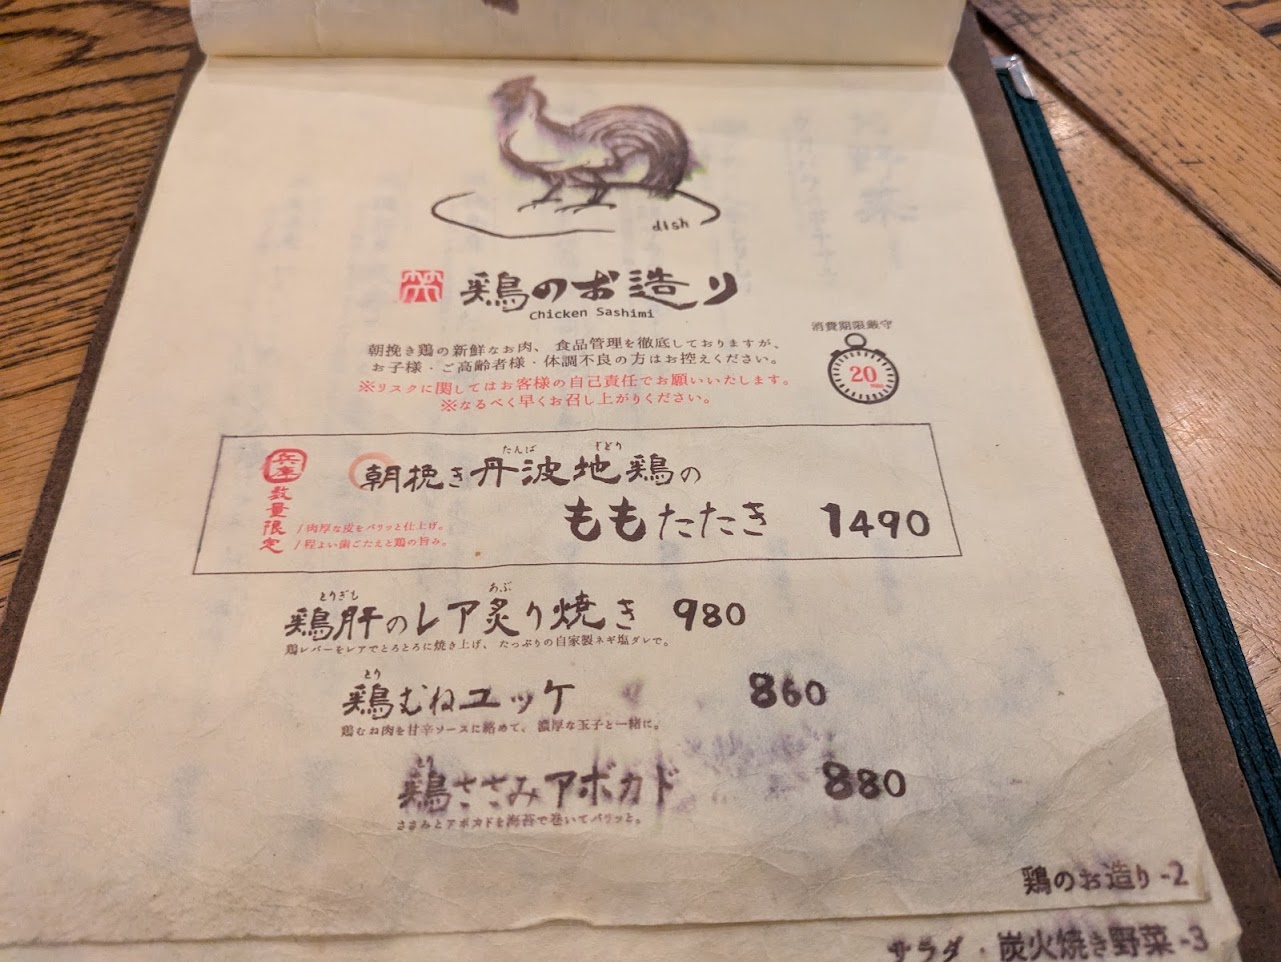 dish
鶏のお造り
Chicken Sashimi
朝挽き鶏の新鮮なお肉、食品管理を徹底しておりますが、
お子様・ご高齢者様・体調不良の方はお控えください。
※リスクに関してはお客様の自己責任でお願いいたします。
※なるべく早くお召し上がりください。
消費期限厳守
20
兵庫
数量限定
たんば じどり
朝挽き丹波地鶏の
ももたたき 1490
/肉厚な皮をパリッと仕上げ。
/程よい歯ごたえと鶏の旨み。
とりぎも あぶ
鶏肝のレア炙り焼き 980
鶏レバーをレアでとろとろに焼き上げ、たっぷりの自家製ネギ塩ダレで。
とり
鶏むねユッケ 860
鶏むね肉を甘辛ソースに絡めて、濃厚な玉子と一緒に。
鶏ささみアボカド 880
ささみとアボカドを海苔で巻いてパリッと。
鶏のお造り -2
サラダ・炭火焼き野菜 -3